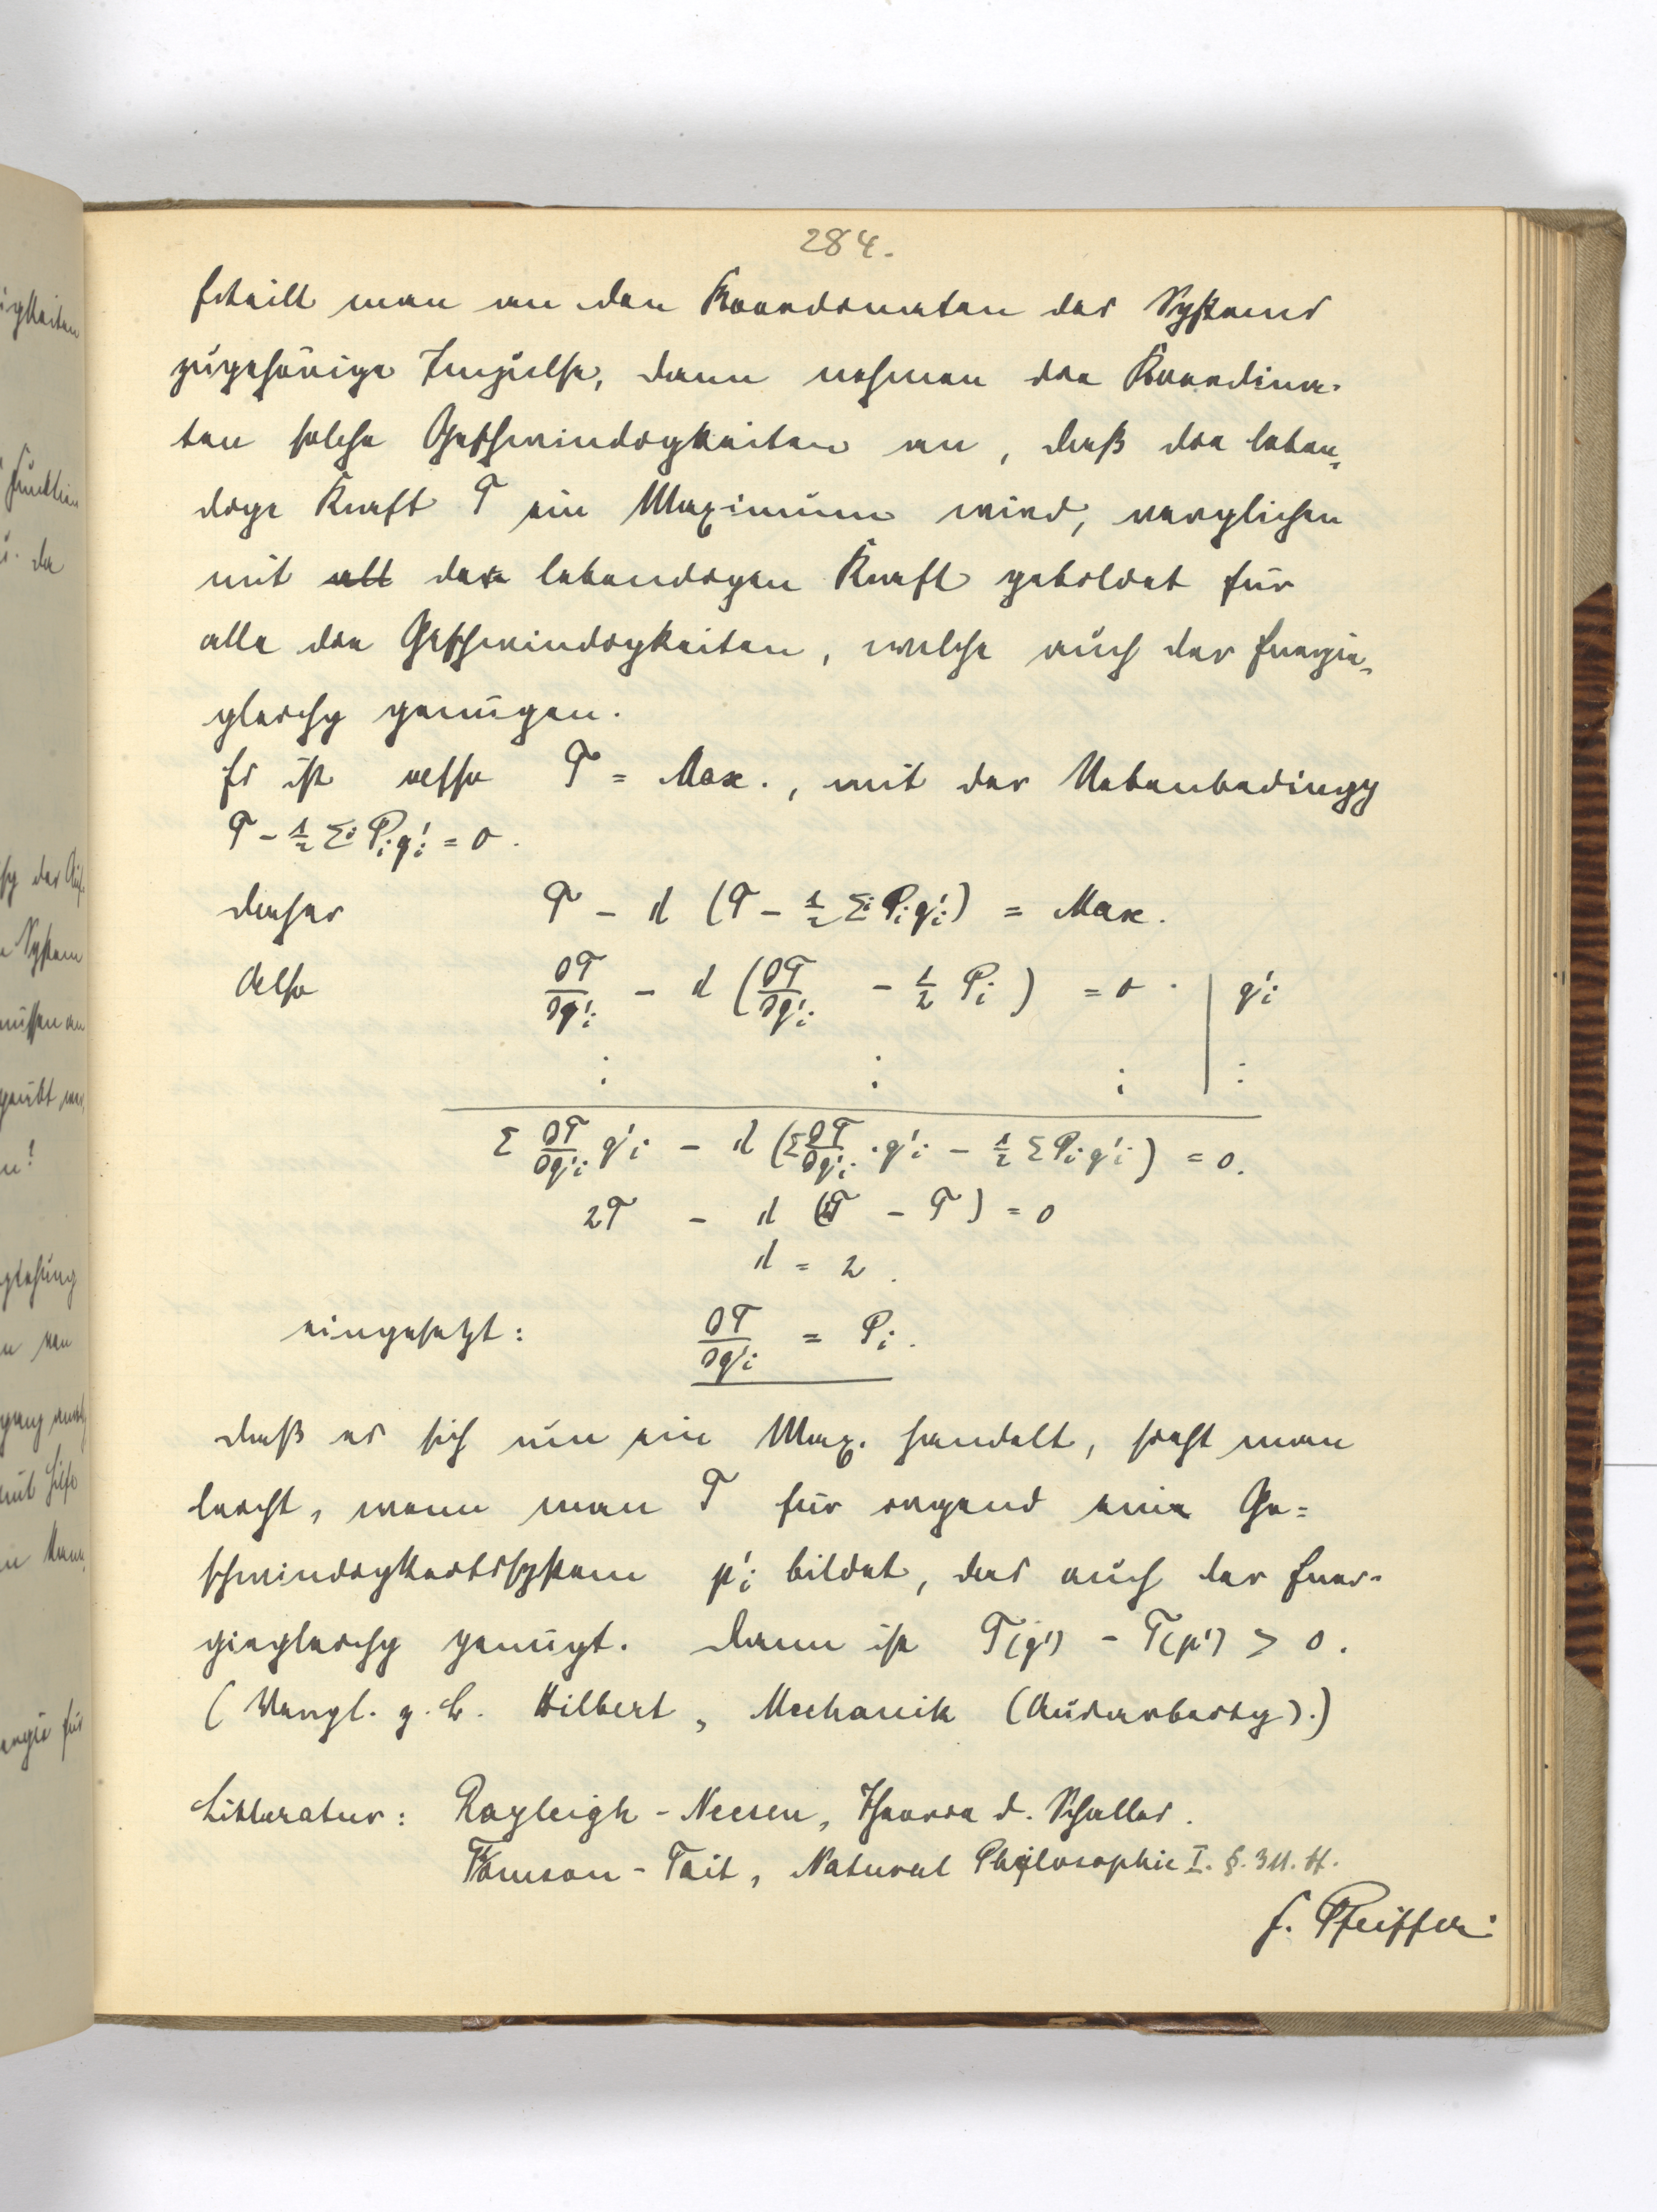 284.
Erteilt man an den Koordinaten des Systems
zugehörige Impulse, dann nehmen die Koordina-
ten solche Geschwindigkeiten an, daß die leben-
dige Kraft T ein Maximum wird, verglichen
mit all der lebendigen Kraft gebildet für
alle die Geschwindigkeiten, welche auch der Energie-
gleichg genügen.
Es ist also T = Max., mit der Nebenbedingg
T - 1/2 Σ Pᵢqᵢ' = 0.
daher T - λ (T - 1/2 Σ Pᵢqᵢ') = Max.
Also ∂T/∂qᵢ' - λ (∂T/∂qᵢ' - 1/2 Pᵢ) = 0. | qᵢ'
⋮ ⋮ ⋮ ⋮
Σ ∂T/∂qᵢ' qᵢ' - λ (Σ ∂T/∂qᵢ' · qᵢ' - 1/2 Σ Pᵢqᵢ') = 0.
2T - λ (2T - T) = 0
λ = 2.
eingesetzt: ∂T/∂qᵢ' = Pᵢ.
daß es sich um ein Max. handelt, sieht man
leicht, wenn man T für irgend ein Ge=
schwindigkeitssystem pᵢ' bildet, das auch der Ener-
giegleichg genügt. Dann ist T(q') - T(p') > 0.
(Vergl. z. B. Hilbert, Mechanik (Ausarbeitg).)
Litteratur: Rayleigh - Neesen, Theorie d. Schalles.
Thomson - Tait, Natural Philosophie I. §. 311. ff.
F. Pfeiffer.
igkeiten
Funktion
u. der
System
müssen an
geübt
n!
von
mit Hilfe
ergie für